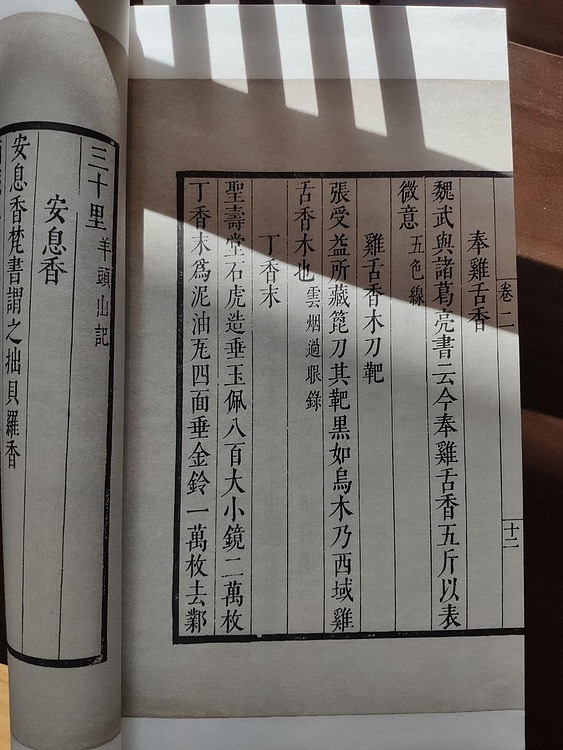 卷二
十二
奉雞舌香
魏武與諸葛亮書云今奉雞舌香五斤以表
微意五色線
雞舌香木刀靶
張受益所藏箆刀其靶黑如烏木乃西域雞
舌香木也雲烟過眼錄
丁香末
聖壽堂石虎造垂玉佩八百大小鏡二萬枚
丁香末爲泥油瓦四面垂金鈴一萬枚去鄴
三十里羊頭山記
安息香
安息香梵書謂之拙貝羅香